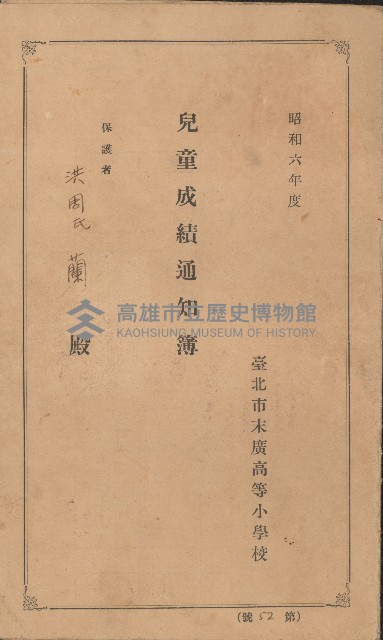 昭和六年度
臺北市末廣高等小學校
兒童成績通知簿
保護者
洪周氏蘭殿
(第52號)
高雄市立歷史博物館
KAOHSIUNG MUSEUM OF HISTORY